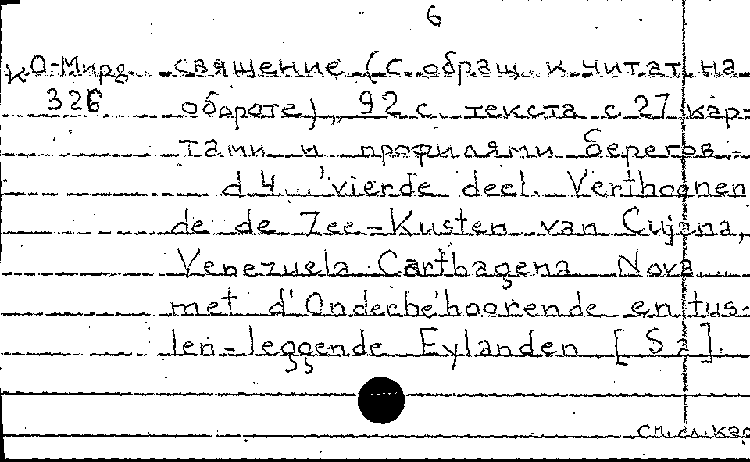 6
О-Мирз. священие (с обращ. к читат на
326 обороте), 92 с. текста с 27 кар-
тами и профилями берегов. -
d 4. 'vierde deel. Verthoonen
de de Zee-Kusten van Cujana,
Venezuela Carthagena Nova
met d'Onderbehoorende en tus-
len-leggende Eylanden [S a].
см. сл. кар